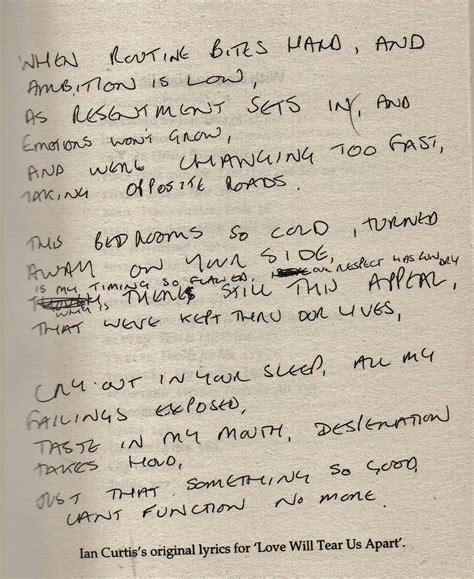 WHEN ROUTINE BITES HARD, AND
AMBITION IS LOW,
AS RESENTMENT SETS IN, AND
EMOTIONS WON'T GROW,
AND WERE CHANGING TOO FAST,
TAKING OPPOSITE ROADS.
THIS BEDROOMS SO COLD, TURNED
AWAY ON YOUR SIDE,
IS MY TIMING SO FLAWED, OUR RESPECT HAS RUN DRY
WHY IS THERE STILL THIS APPEAL,
THAT WE'VE KEPT THRU OUR LIVES,
CRY OUT IN YOUR SLEEP, ALL MY
FAILINGS EXPOSED,
TASTE IN MY MOUTH, DESPERATION
TAKES HOLD,
JUST THAT SOMETHING SO GOOD,
CANT FUNCTION NO MORE.
Ian Curtis's original lyrics for 'Love Will Tear Us Apart'.